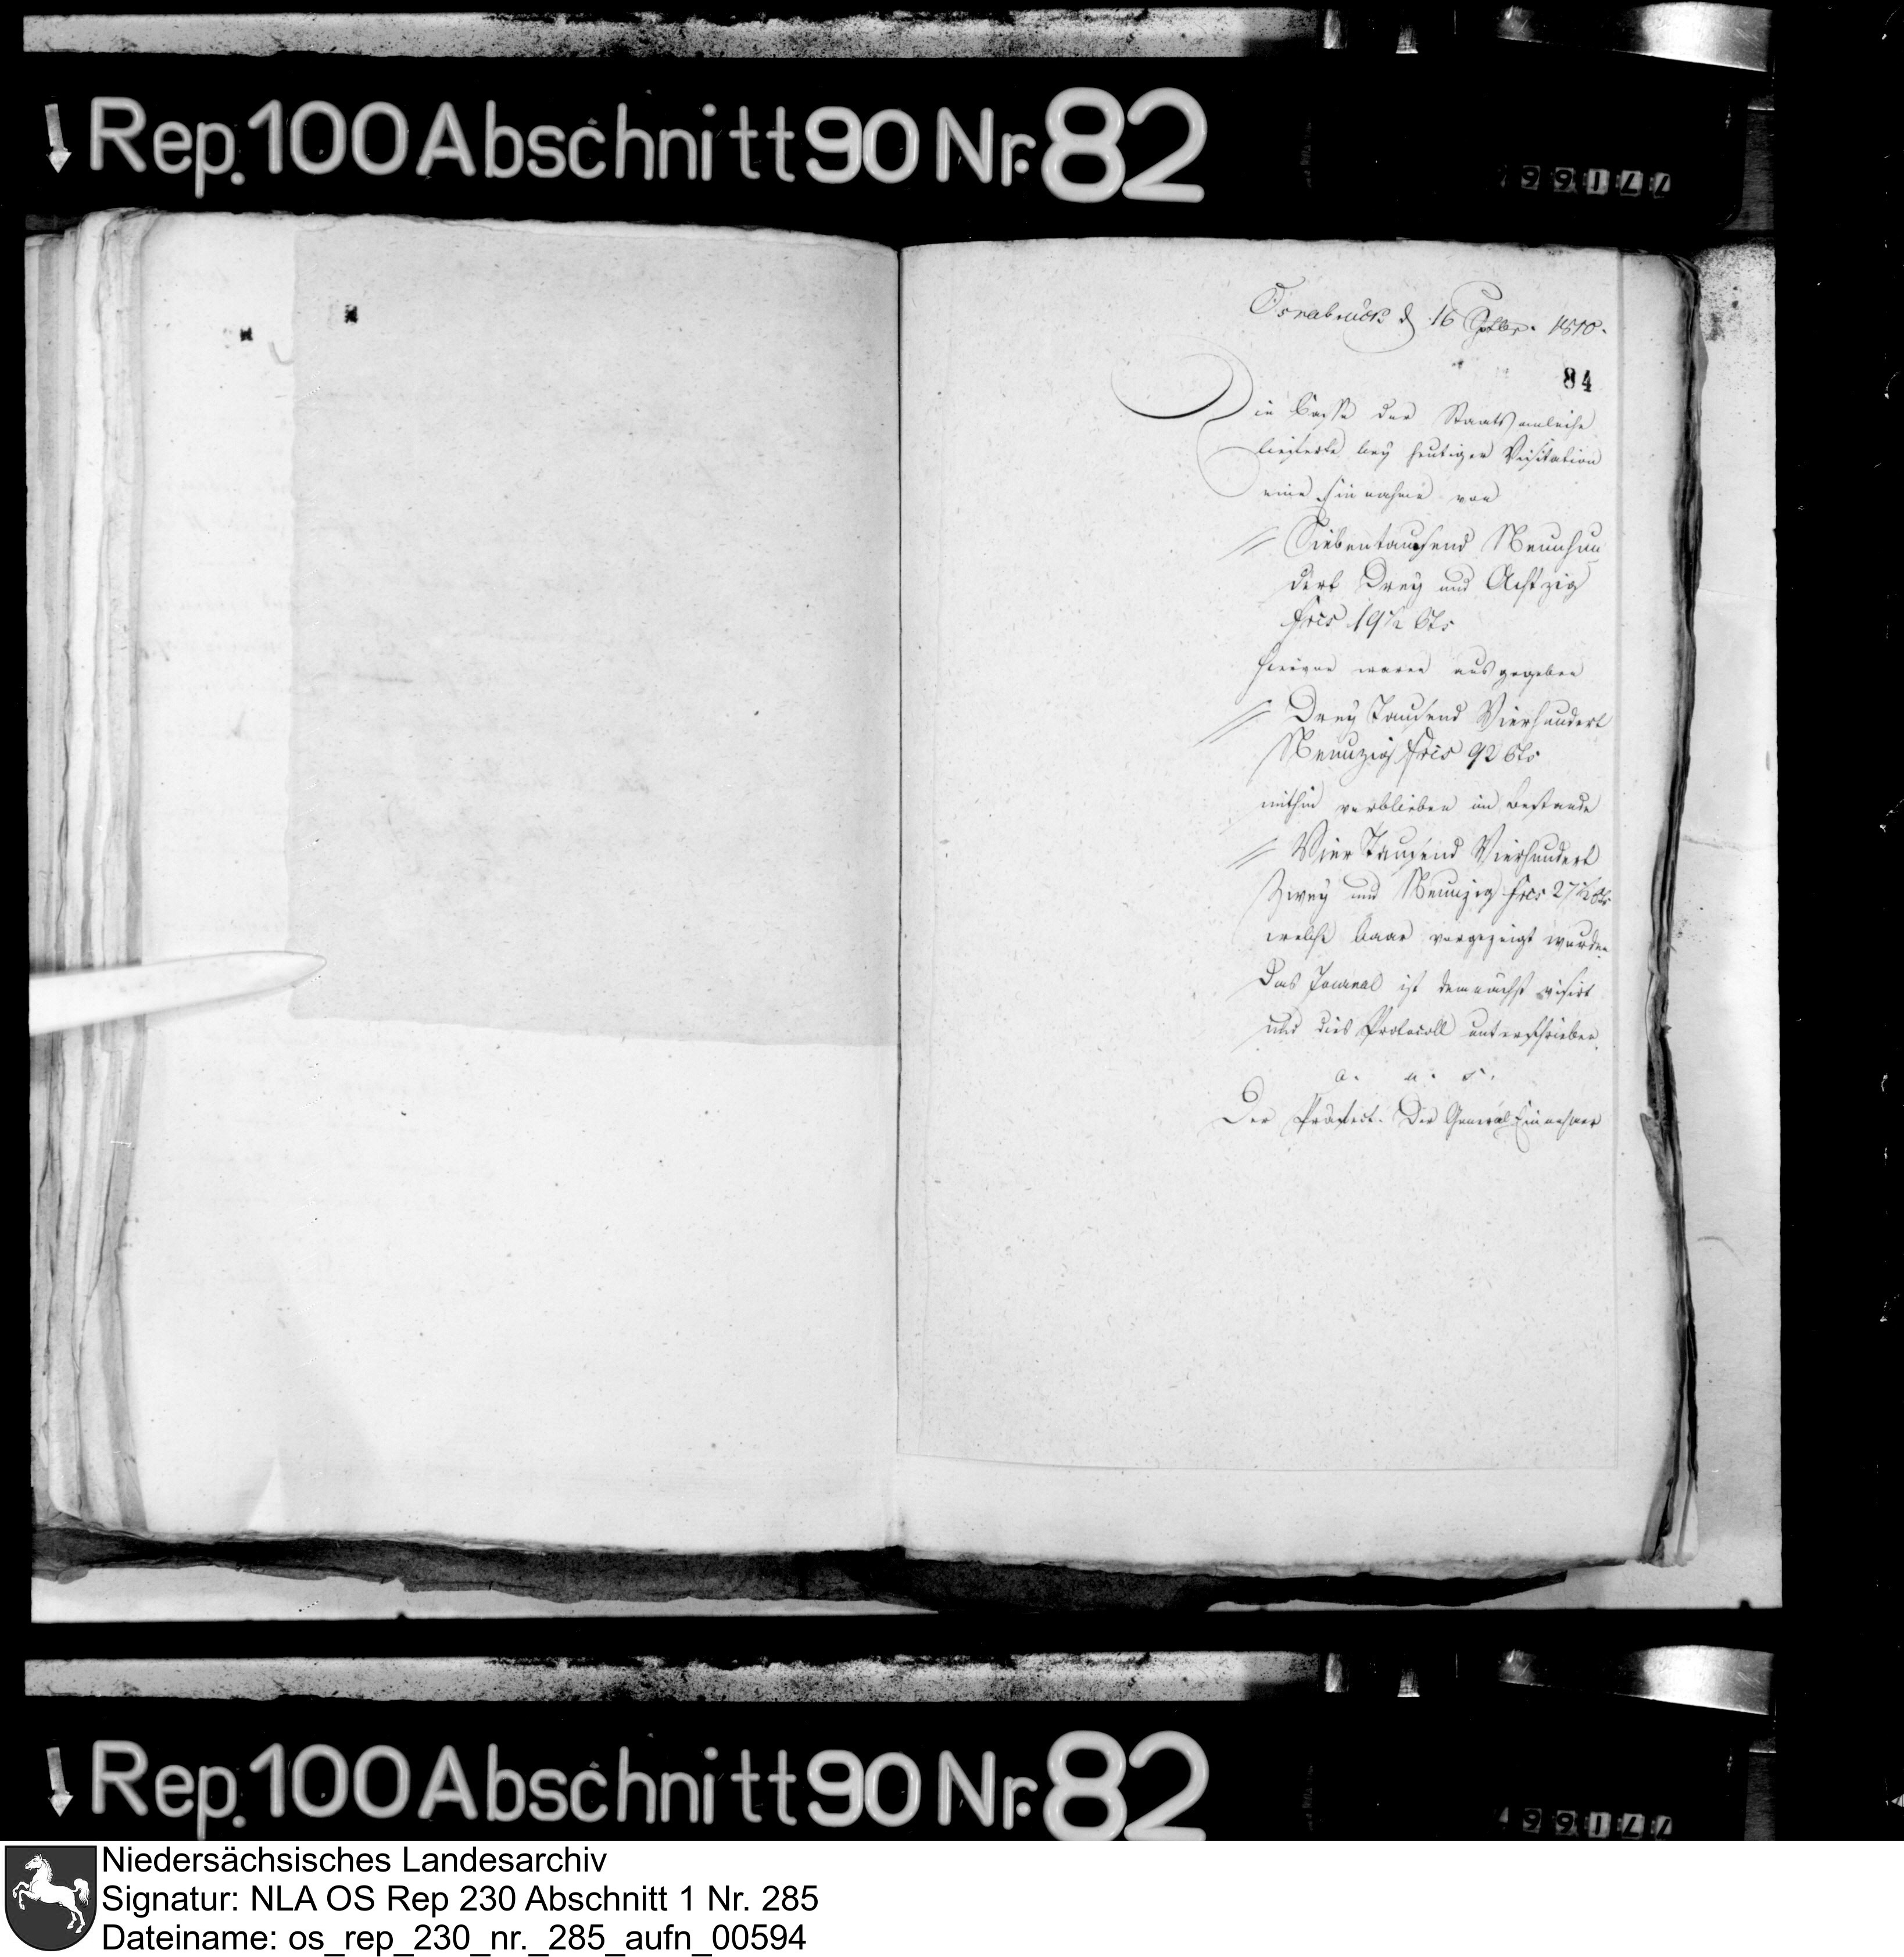 Rep. 100 Abschnitt 90 Nr. 82
Osnabrück d 16 Septbr. 1810.
84
Die Casse der Staatsanleihe
lieferte bey heutiger Visitation
eine Einnahme von
// Siebentausend Neunhun
dert Drey und Achtzig
frcs 19½ Cts
hievon waren ausgegeben
// Drey Tausend Vierhundert
Neunzig frcs 92 Cts
mithin verblieben im Bestande
// Vier Tausend Vierhundert
Zwey und Neunzig frcs 27½ Cts
welche baar vorgezeigt wurden.
Das Journal ist demnächst visirt
und dies Protocoll unterschrieben.
a. u. s.
Der Präfect. Der General Einnehmer
Rep. 100 Abschnitt 90 Nr. 82
Niedersächsisches Landesarchiv
Signatur: NLA OS Rep 230 Abschnitt 1 Nr. 285
Dateiname: os_rep_230_nr._285_aufn_00594